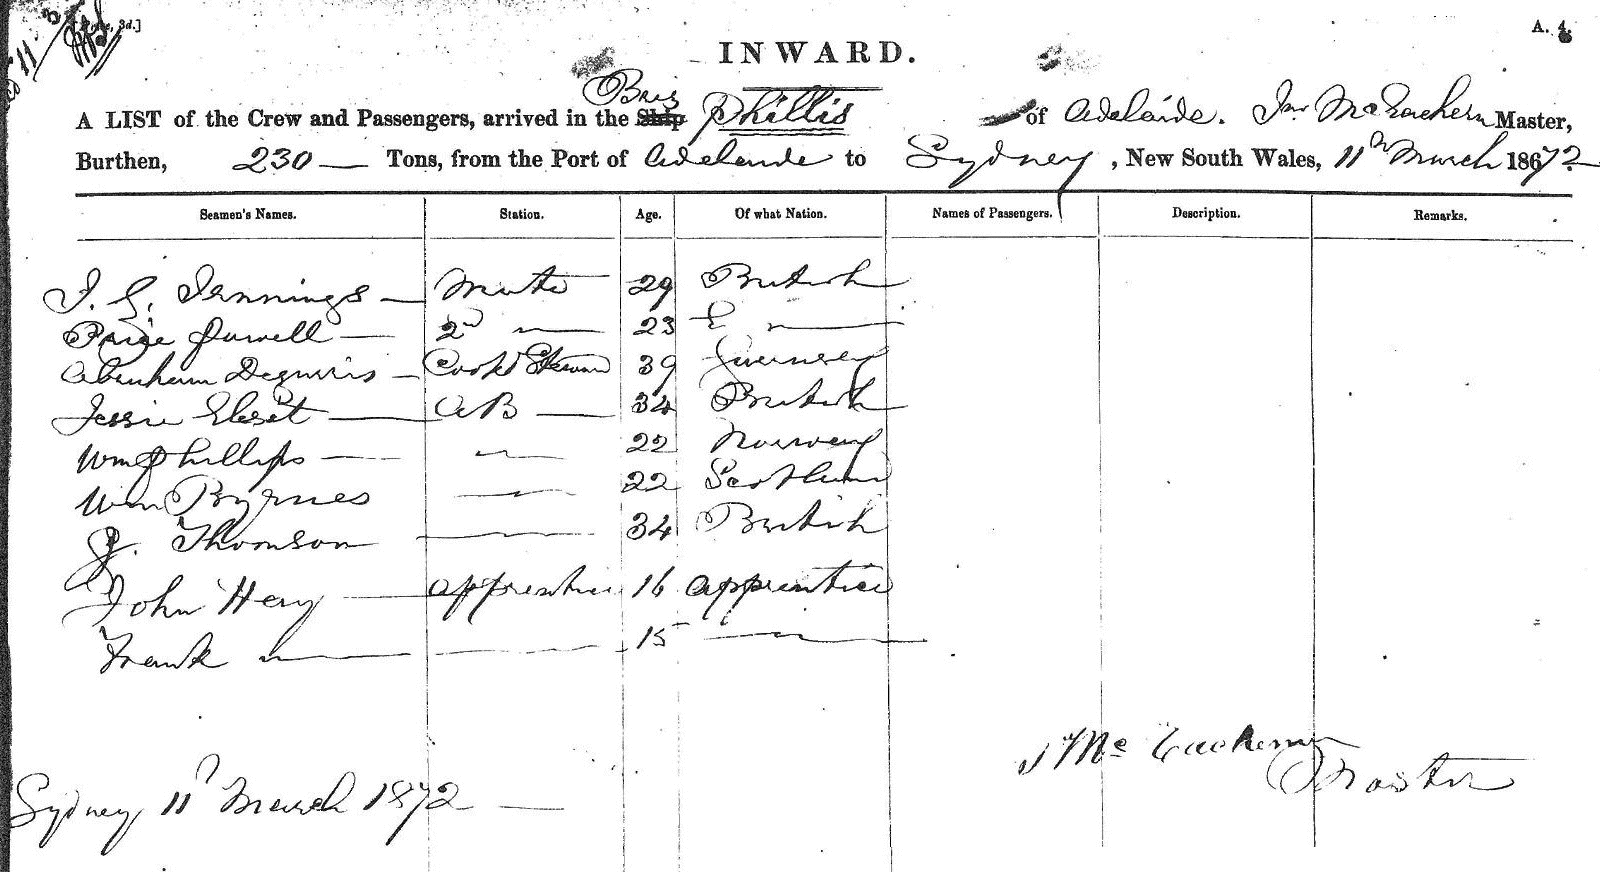 3d.] A. 4.
INWARD.
Brig
A LIST of the Crew and Passengers, arrived in the Ship Phillis of Adelaide. Jas McEachern Master,
Burthen, 230 Tons, from the Port of Adelaide to Sydney, New South Wales, 11th March 1872.
Seamen's Names. Station. Age. Of what Nation. Names of Passengers. Description. Remarks.
J. G. Jennings — Mate 29 British
Powell — 2nd — 23 —
Abraham — Cook & Steward 39 Guernsey
Jessie — AB — 34 British
Wm Phillips — 22 Norway
Wm Byrnes — 22 Scotland
J. Thomson — 34 British
John Hery — apprentice 16 apprentice
Frank — 15 —
J McEachern
Master
Sydney 11th March 1872 —